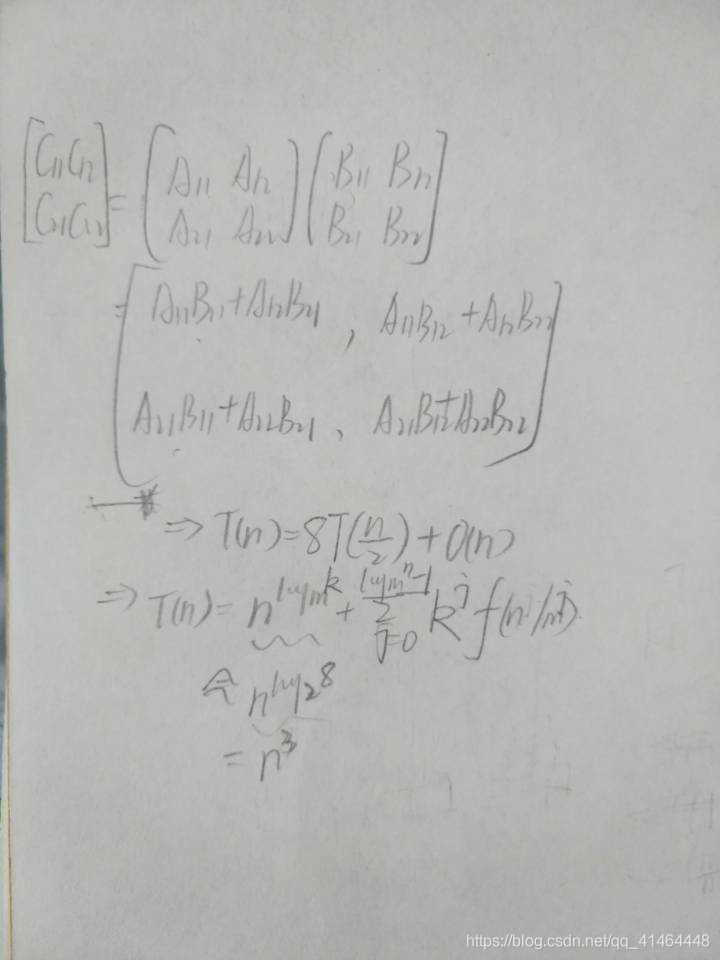 [C11 C12
C21 C22] = (A11 A12
A21 A22) (B11 B12
B21 B22]
= [A11B11+A12B21 , A11B12+A12B22
A21B11+A22B21 、 A21B12+A22B22]
⇒ T(n)=8T(n/2)+O(n)
⇒ T(n)= n^{log_m k} + Σ_{j=0}^{log_m n -1} k^j f(n/m^j)
n^{log_2 8}
= n^3
https://blog.csdn.net/qq_41464448